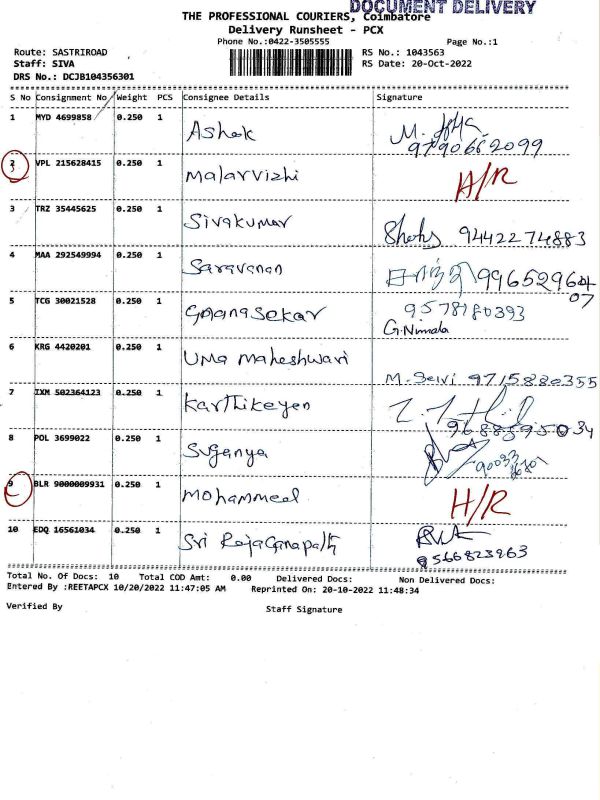 DOCUMENT DELIVERY
THE PROFESSIONAL COURIERS, Coimbatore
Delivery Runsheet - PCX
Phone No.:0422-3505555 Page No.:1
Route: SASTRIROAD RS No.: 1043563
Staff: SIVA RS Date: 20-Oct-2022
DRS No.: DCJB104356301
S No Consignment No Weight PCS Consignee Details Signature
1 MYD 4699858 0.250 1 Ashok M. 9790662099
2 VPL 215628415 0.250 1 Malarvizhi H/R
3 TRZ 35445625 0.250 1 Sivakumar 9442274883
4 MAA 292549994 0.250 1 Saravanan
5 TCG 30021528 0.250 1 Gnanasekar 9578180393
G.Nirmala
6 KRG 4420201 0.250 1 Uma Maheshwari M. Selvi 9715880355
7 IXM 502364123 0.250 1 Karthikeyen
8 POL 3699022 0.250 1 Suganya
9 BLR 9000009931 0.250 1 Mohammeed H/R
10 EDQ 16561034 0.250 1 Sri RajaGanapathi
9566823263
Total No. Of Docs: 10 Total COD Amt: 0.00 Delivered Docs: Non Delivered Docs:
Entered By :REETAPCX 10/20/2022 11:47:05 AM Reprinted On: 20-10-2022 11:48:34
Verified By Staff Signature